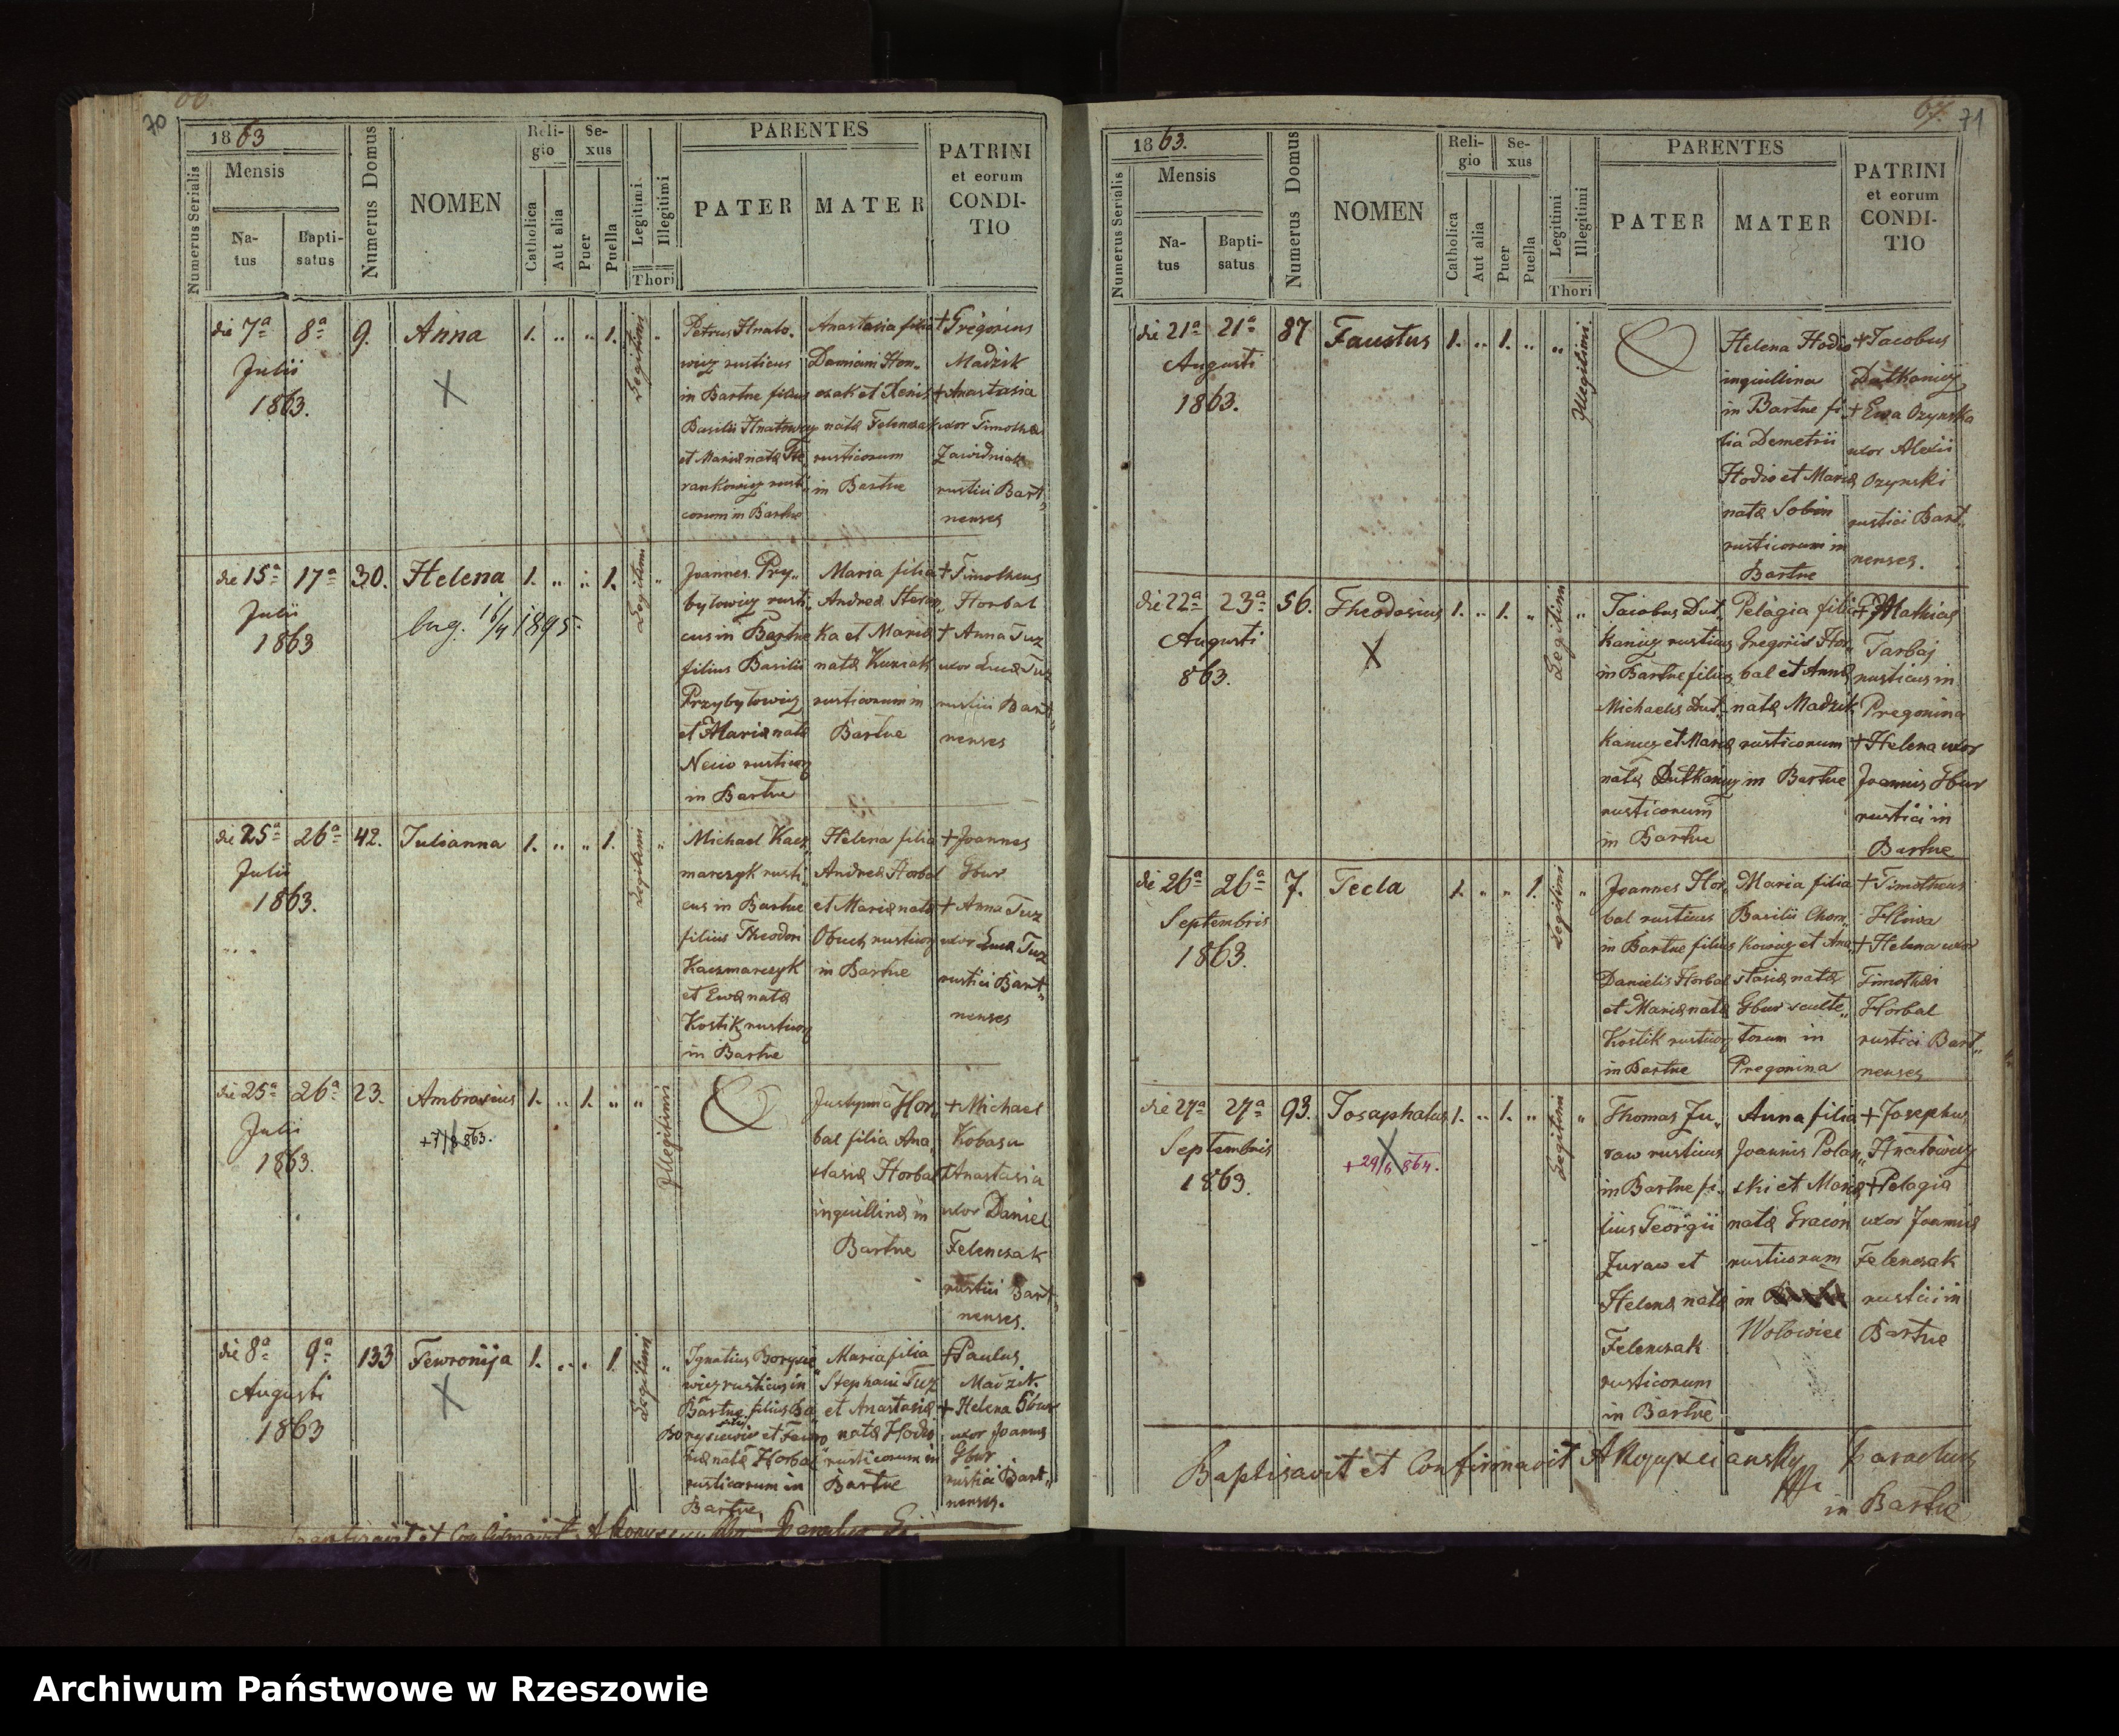 70
66.
1863
Numerus Serialis
Mensis
Na-
tus
Bapti-
satus
Numerus Domus
NOMEN
Reli-
gio
Catholica
Aut alia
Se-
xus
Puer
Puella
Legitimi
Illegitimi
Thori
PARENTES
PATER
MATER
PATRINI
et eorum
CONDI-
TIO
die 7ª
Julii
1863.
8ª
9.
Anna
1.
"
"
1.
Legitimi
"
Petrus Hnato-
wicz rusticus
in Bartne filius
Basilii Hnatowicz
et Mariæ natæ
rusti
corum in Bartne
Anastasia filia
Damiani Hom-
czak et Xeniæ
natæ Felenczak
rusticorum
in Bartne
+ Gregorius
Madzik
+ Anastasia
uxor Timothei
Zawidniak
rustici Bart„
nenses
die 15ª
Julii
1863
17ª
30.
Helena
1895
1.
"
"
1.
Legitimi
"
Joannes Pry„
bylowicz rusti„
cus in Bartne
filius Basilii
Przybylowicz
et Mariæ natæ
rusticor
in Bartne
Maria filia
Andreæ Steran„
ka et Mariæ
natæ Kuziak
rusticorum in
Bartne
+ Timotheus
Horbal
+ Anna Tuz
uxor Lucæ Tuz
rustici Bart„
nenses
die 25ª
Julii
1863.
26ª
42.
Julianna
1.
"
"
1.
Legitimi
"
Michael Kacz„
marczyk rusti„
cus in Bartne
filius Theodori
Kaczmarczyk
et Evæ natæ
Kostik rusticor
in Bartne
Helena filia
Andreæ Horbal
et Mariæ natæ
Obuch rusticor
in Bartne
+ Joannes
Gbur
+ Anna Tuz
uxor Lucæ Tuz
rustici Bart„
nenses
die 25ª
Julii
1863.
26ª
23.
Ambrosius
+7/8 863.
1.
"
1.
"
"
Illegitimi
Justynna Hor„
bal filia Ana„
stasiæ Horbal
inquillinæ in
Bartne
+ Michael
Kobasu
+ Anastasia
uxor Daniel
Felenczak
rustici Bart„
nenses.
die 8ª
Augusti
1863
9ª
133
Fewronija
1.
"
"
1.
Legitimi
"
Ignatius Borysie„
wicz rusticus in
Bartne filius
Borysiewicz et Fewro„
niæ natæ Horbal
rusticorum in
Bartne
Maria filia
Stephani Tuz
et Anastasiæ
natæ Hodio
rusticorum in
Bartne
+ Paulus
Madzik.
+ Helena Gbur
uxor Joannis
Gbur
rustici Bart„
nenses.
67.
71
1863.
Numerus Serialis
Mensis
Na-
tus
Bapti-
satus
Numerus Domus
NOMEN
Reli-
gio
Catholica
Aut alia
Se-
xus
Puer
Puella
Legitimi
Illegitimi
Thori
PARENTES
PATER
MATER
PATRINI
et eorum
CONDI-
TIO
die 21ª
Augusti
1863.
21ª
87
Faustus
1.
"
1.
"
"
Illegitimi.
Helena Hodio
inquillina
in Bartne fi
lia Demetrii
Hodio et Mariæ
natæ Sobin
rusticorum in
Bartne
+ Jacobus
Dutkanicz
+ Ewa Ozynska
uxor Alexii
Ozynski
rustici Bart„
nenses.
die 22ª
Augusti
863.
23ª
56.
Theodosius
1.
"
1.
"
Legitimi
"
Jacobus Dut„
kanicz rusticus
in Bartne filius
Michaelis Dut„
kanicz et Mariæ
natæ Dutkanicz
rusticorum
in Bartne
Pelagia filia
Gregorii Hor„
bal et Annæ
natæ Madzik
rusticorum
in Bartne
+ Mathias
Tarbaj
rusticus in
Pregonina
+ Helena uxor
Joannis Gbur
rustici in
Bartne
die 26ª
Septembris
1863.
26ª
7.
Tecla
1.
"
"
1.
Legitimi
"
Joannes Hor„
bal rusticus
in Bartne filius
Danielis Horbal
et Mariæ natæ
Kostik rusticor
in Bartne
Maria filia
Basilii Chom„
kowicz et Ana„
stasiæ natæ
Gbur sculte„
torum in
Pregonina
+ Timotheus
Hliwa
+ Helena uxor
Timothei
Horbal
rustici Bart„
nenses
die 27ª
Septembris
1863.
27ª
93.
Josaphatus
+29/6 864.
1.
"
1.
"
Legitimi
"
Thomas Ju„
raw rusticus
in Bartne fi„
lius Georgii
Juraw et
Helenæ natæ
Felenczak
rusticorum
in Bartne
Anna filia
Joannis Polan„
ski et Mariæ
natæ Gracoń
rusticorum
in
Wolowiec
+ Josephus
Hnatowicz
+ Pelagia
uxor Joannis
Felenczak
rustici in
Bartne
Baptisavit et Confirmavit parochus
in Bartne
Archiwum Państwowe w Rzeszowie